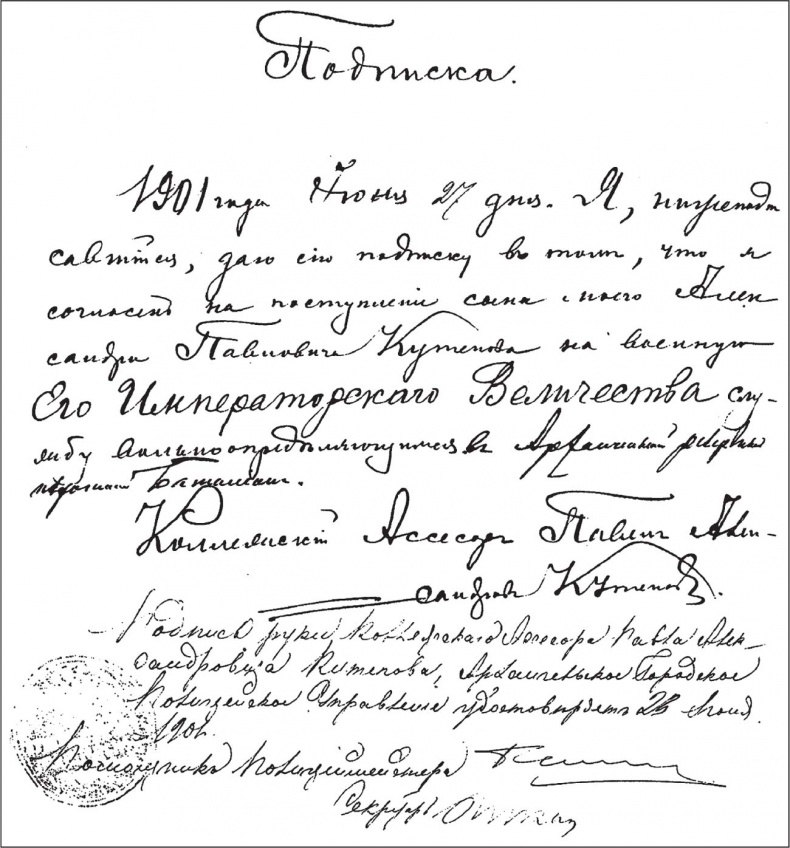 Подписка.
1901 года Июня 27 дня. Я, нижеподпи
савшийся, даю сію подписку въ томъ, что я
согласенъ на поступленіе сына моего Алек
сандра Павловича Кутепова на военную
Его Императорскаго Величества слу-
жбу вольноопредѣляющимся въ Архангельскій резервный
пѣхотный Баталіонъ.
Коллежскій Ассесоръ Павелъ Алек-
сандровъ Кутеповъ.
Подпись руки Коллежскаго Ассесора Павла Алек-
сандровича Кутепова, Архангельское Городское
Полицейское Управленіе удостовѣряетъ 28 Іюня
1901.
Помощникъ Полиціймейстера
Секретарь